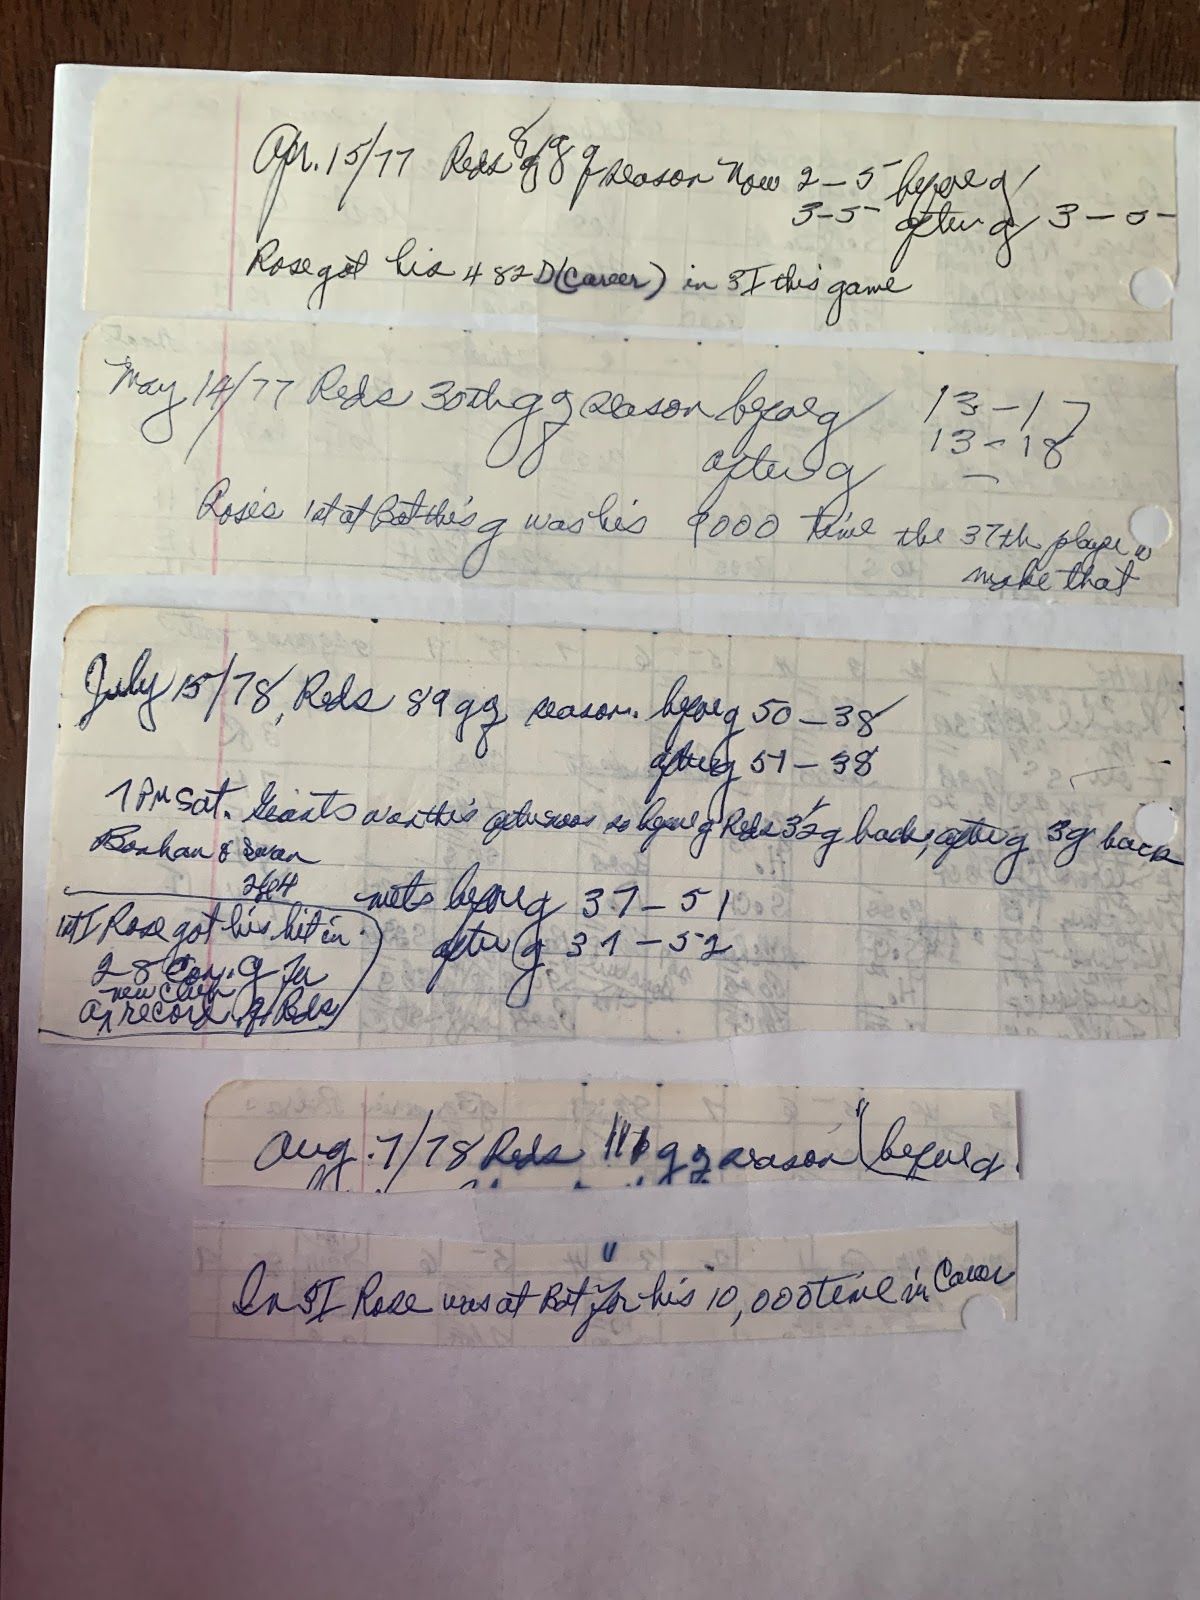 Apr. 15/77 Reds 8 g of season Now 2-5 before g
3-5 after g 3-5-
Rose got his 482 D (Career) in 3I this game
May 14/77 Reds 30th g of season before g 13-17
after g 13-18
-
Rose's 1st at Bat this g was his 9000 time the 37th player to
make that
July 15/78, Reds 89 g of season. before g 50-38
after g 51-38
7 PM Sat. Giants won this afternoon so before g Reds g back, after g 3g back
Bonham & Swan
Mets before g 37-51
after g 37-52
1st I Rose got his hit in
28 Con. g for
new club
a record for Reds
Aug. 7/78 Reds 111 g of season before g.
In 3I Rose was at Bat for his 10,000 time in Career